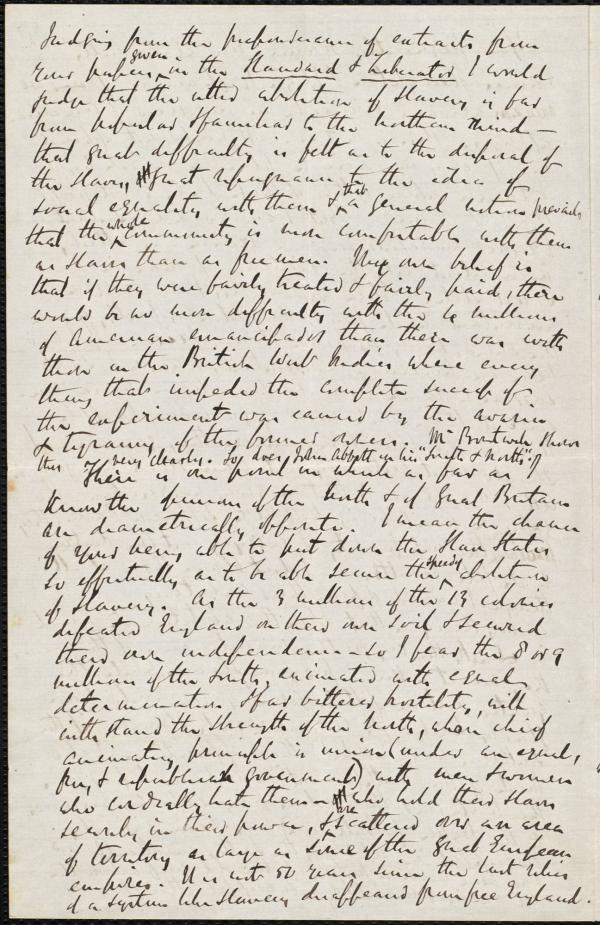 Judging from the preponderance of extracts from
your papers given in the Standard & Liberator I would
judge that the utter abolition of slavery is far
from popular & familiar to the northern mind —
that great difficulty is felt as to the disposal of
the slaves, great repugnance to the idea of
social equality with them & that a general notion prevails
that the whole community is more comfortable with them
as slaves than as freemen. My own belief is
that if they were fairly treated & fairly paid, there
would be no more difficulty with the 4 millions
of American emancipados than there was with
those in the British West Indies where every
thing that impeded the complete success of
the experiment was caused by the avarice
& tyranny of the former owners. Mr shows
this very clearly. So does John Abbott in his "South & North".
There is one point in which as far as I
know the opinion of the North & of Great Britain
are diametrically opposite. I mean the chance
of your being able to put down the Slave States
so effectually as to be able secure the speedy abolition
of slavery. As the 3 millions of the 13 colonies
defeated England on their own soil & secured
their own independence — so I fear the 8 or 9
millions of the South, animated with equal
determination & far bitterer hostility, will
withstand the strength of the North, whose chief
animating principle is union (under an equal,
free, & republican government) with men & women
who cordially hate them — who hold their slaves
securely in their power, & are scattered over an area
of territory as large as some of the great European
empires. It is not 50 years since the last
of a system like slavery disappeared from free England.